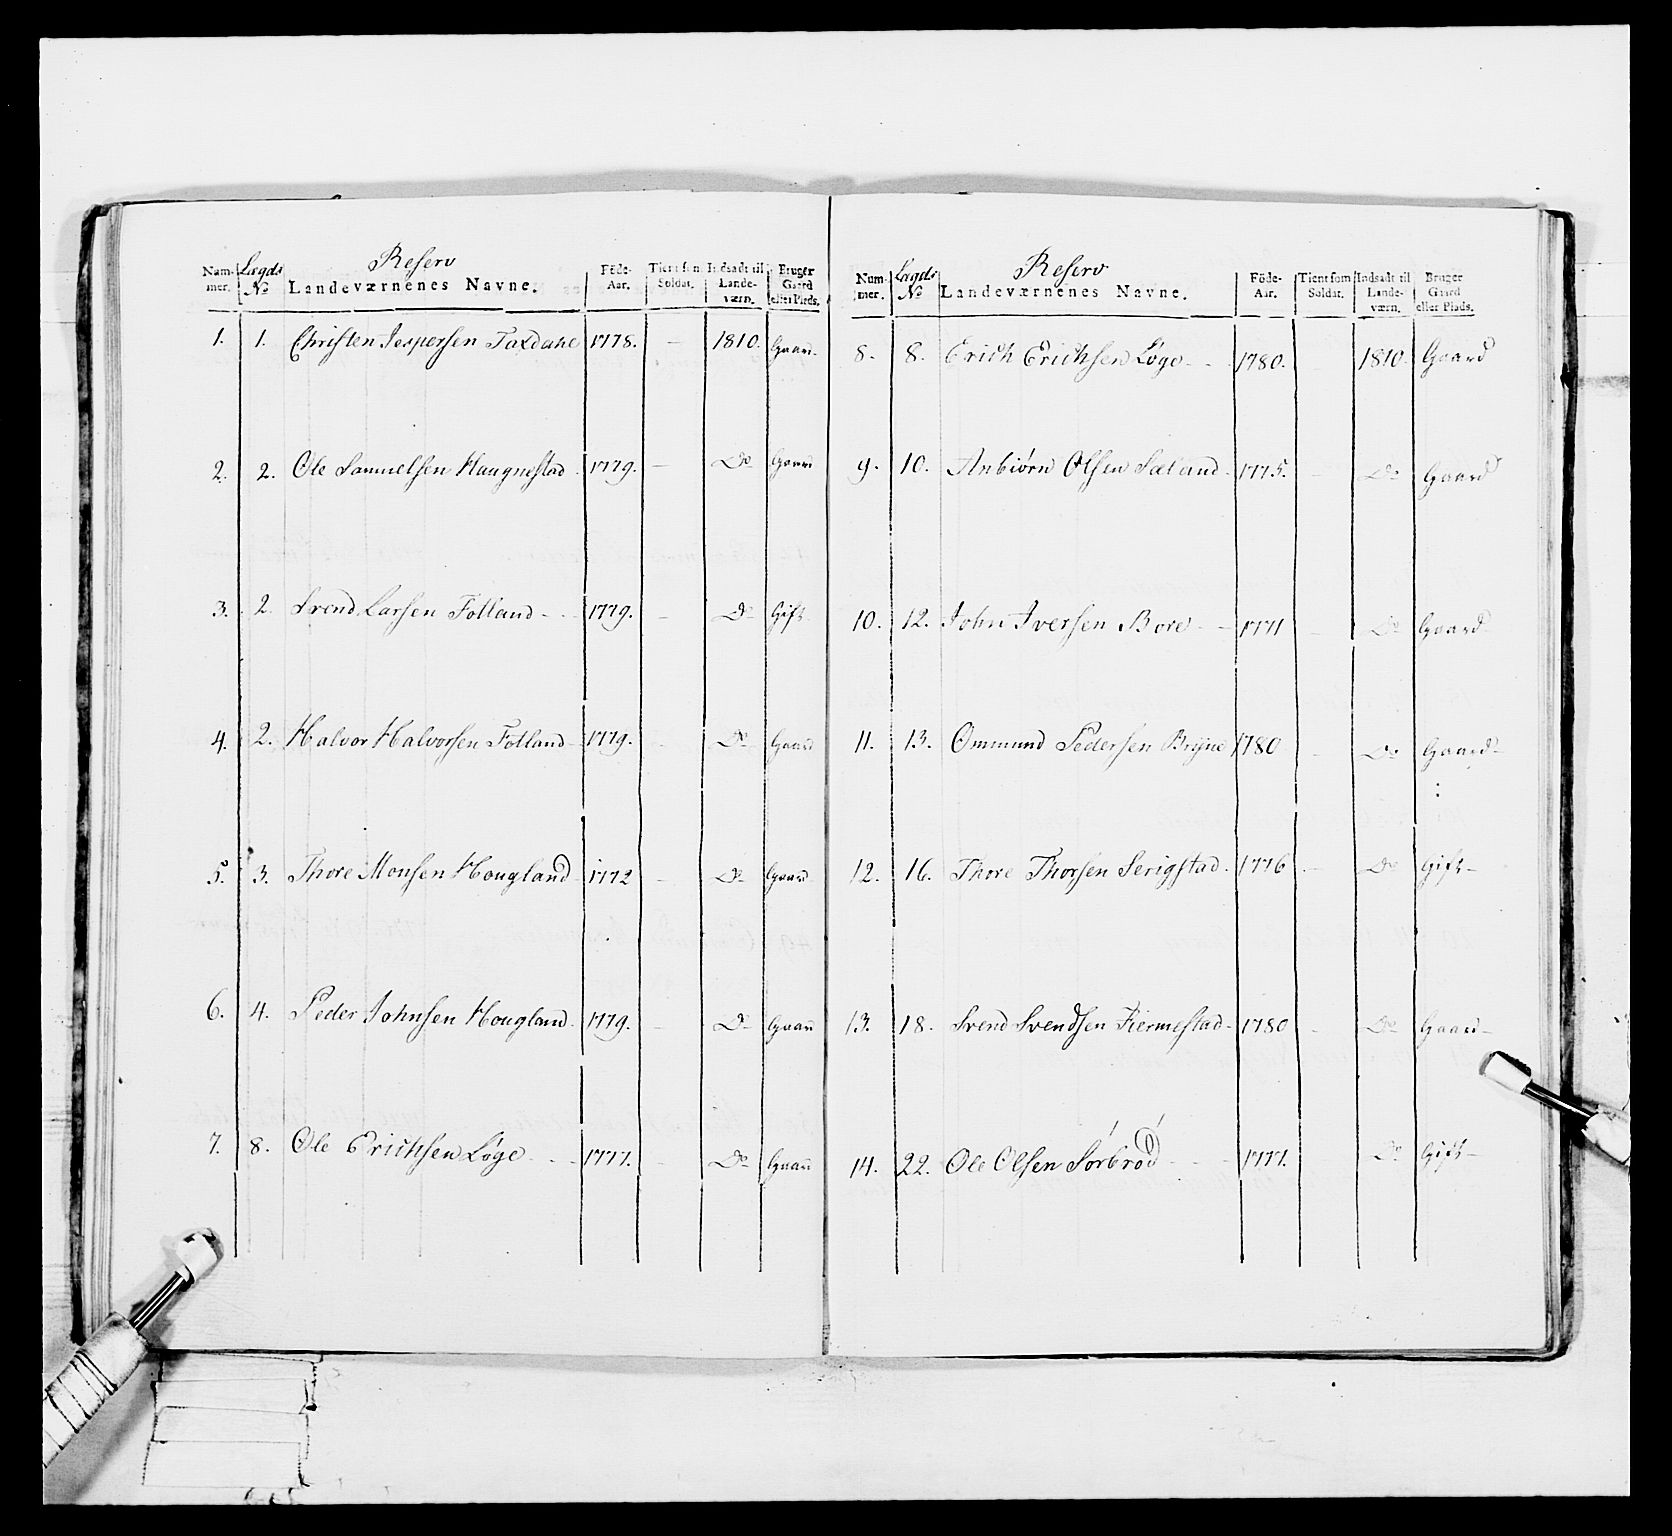 Reserv
Nummer. Lægds No Landeværnenes Navne. Föde-Aar. Tient som Soldat. Indsadt til Landeværn. Bruger Gaard eller Plads.
1. 1. Christen Jespersen 1778. — 1810. Gaard
2. 2. Ole Samuelsen Haugnestad 1779. — Do Gaard
3. 2. Svend Larsen Fotland - 1779. — Do Gift
4. 2. Halvor Halvorsen Fotland 1779. — Do Gaard
5. 3. Thore Monsen Hougland 1772 — Do Gaard
6. 4. Peder Johnsen Hougland. 1779. — Do Gaard
7. 8. Ole Erichsen Løge - - - 1777. — Do Gaard
Reserv
Nummer. Lægds No Landeværnenes Navne. Föde-Aar. Tient som Soldat. Indsadt til Landeværn. Bruger Gaard eller Plads.
8. 8. Erich Erichsen Løge - - - 1780. 1810. Gaard
9. 10. Anbiørn Olsen Sæland. 1775. — Do Gaard
10. 12. John Iversen Bore - - 1771 — Do Gaard
11. 13. Ommund Pedersen Bryne 1780 — Do Gaard-
12. 16. Thore Thorsen Serigstad. 1776 — Do Gift-
13. 18. Svend Svendsen Tiermestad. 1780 — Do Gaard-
14. 22. Ole Olsen Sørbrød - - - 1777. Do Gift-